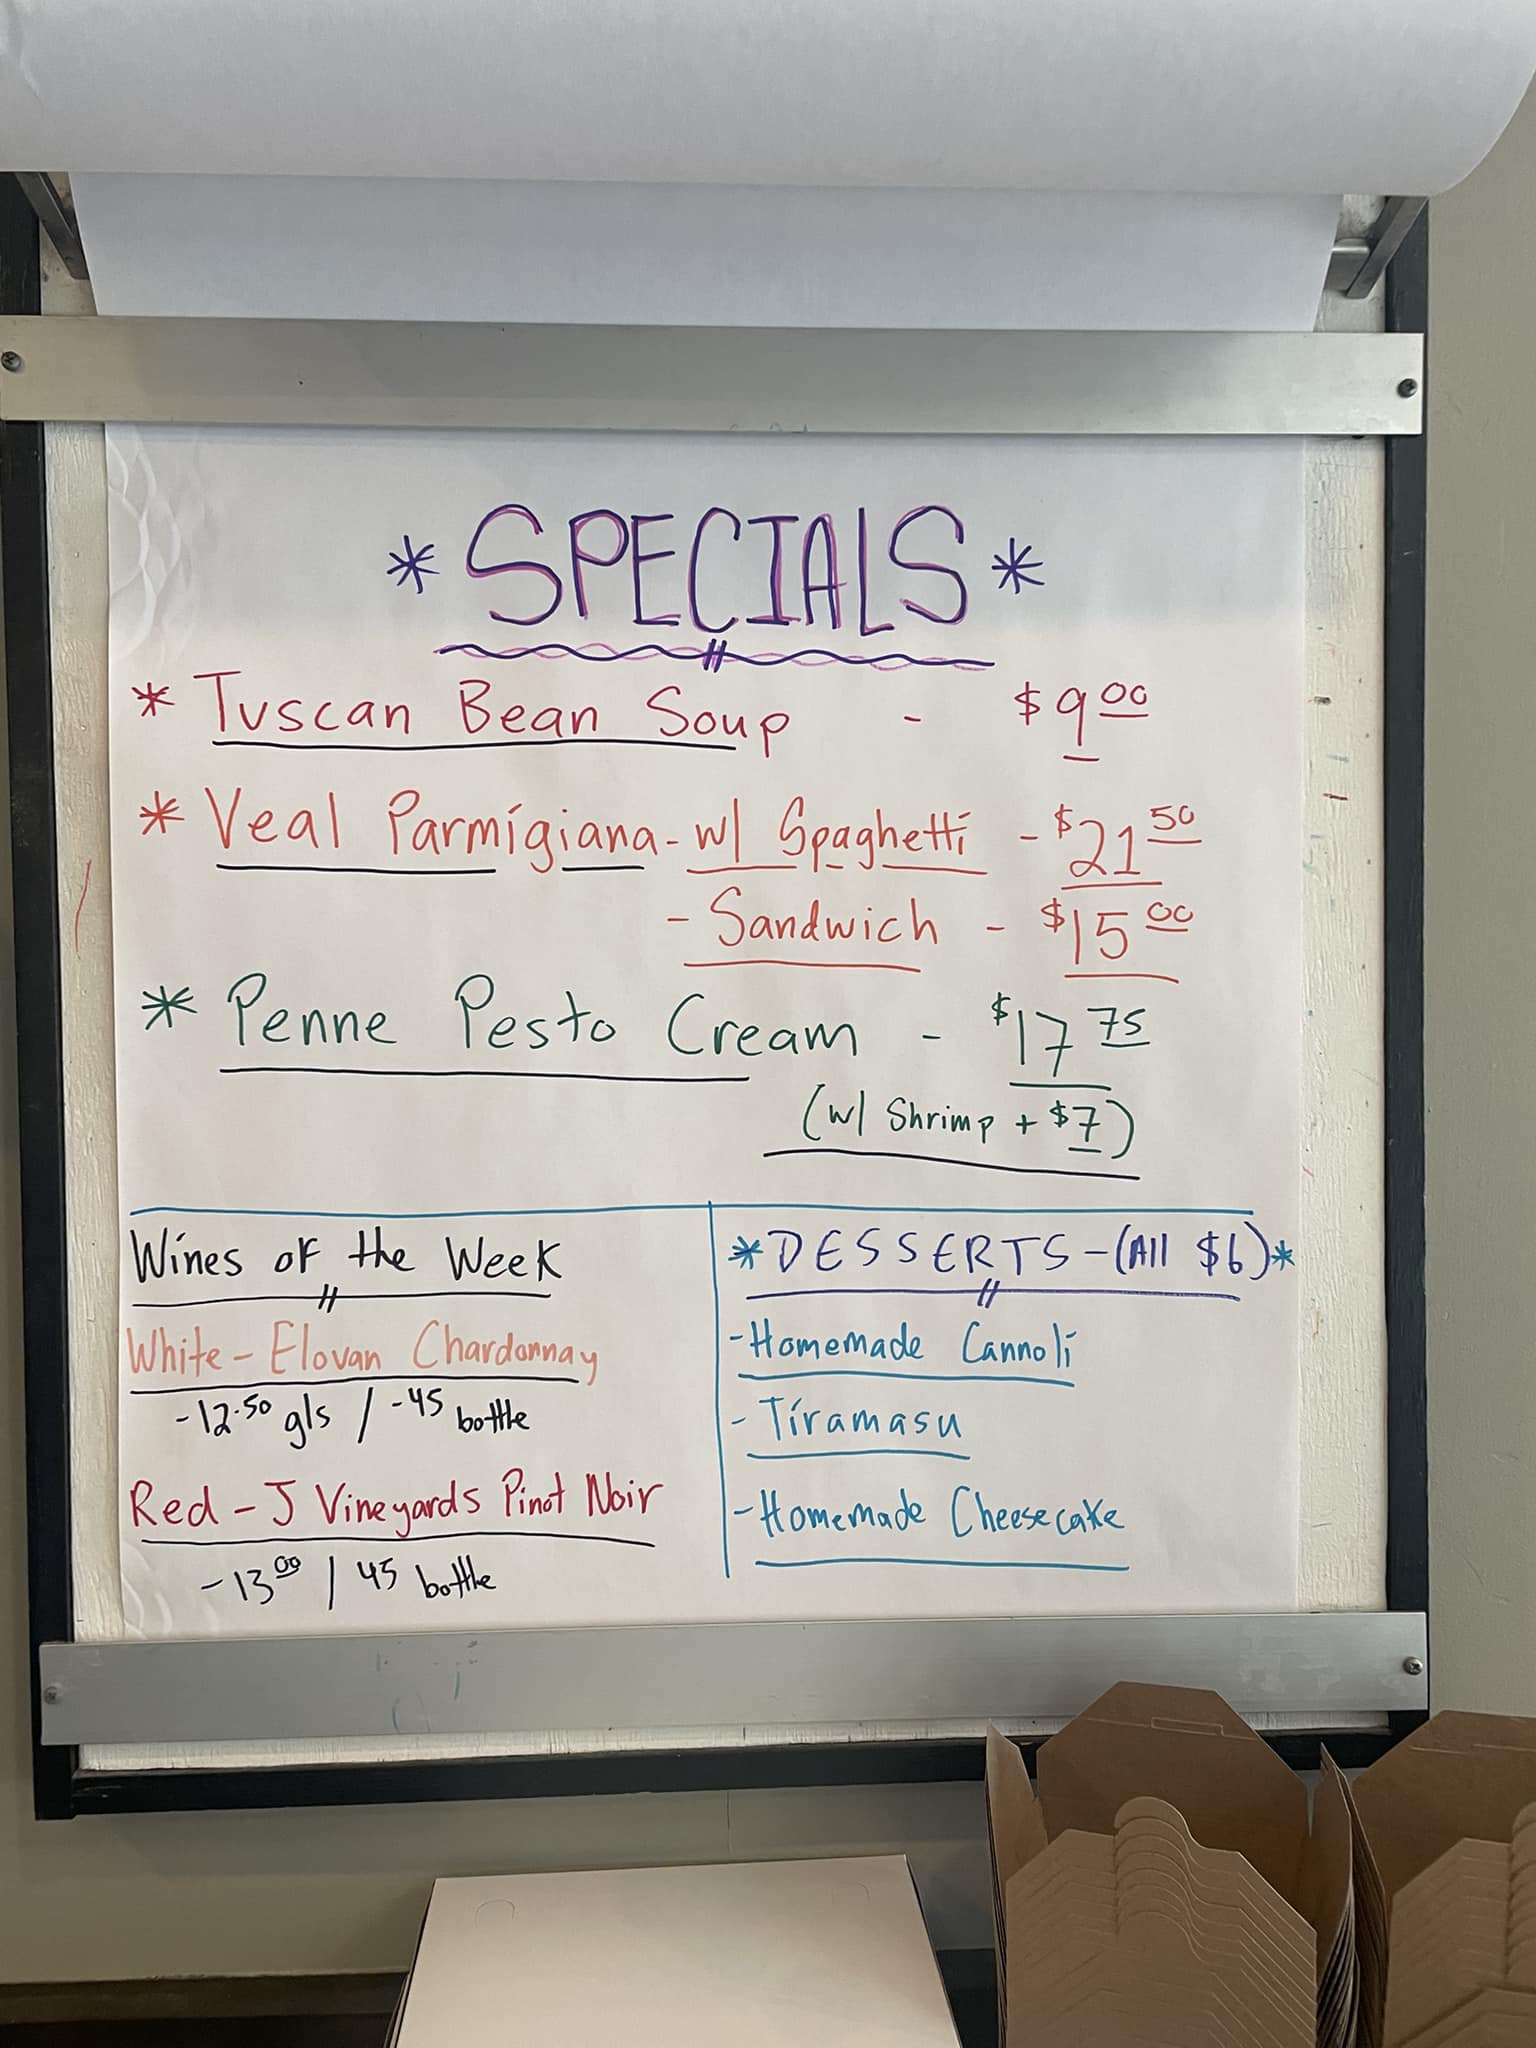 * SPECIALS *
* Tuscan Bean Soup - $9.00
* Veal Parmigiana - w/ Spaghetti - $21.50
- Sandwich - $15.00
* Penne Pesto Cream - $17.75
(w/ Shrimp + $7)
Wines of the Week
White - Elovan Chardonnay
-12.50 gls / -45 bottle
Red - J Vineyards Pinot Noir
-13.00 / 45 bottle
* DESSERTS - (All $6) *
- Homemade Cannoli
- Tiramasu
- Homemade Cheesecake